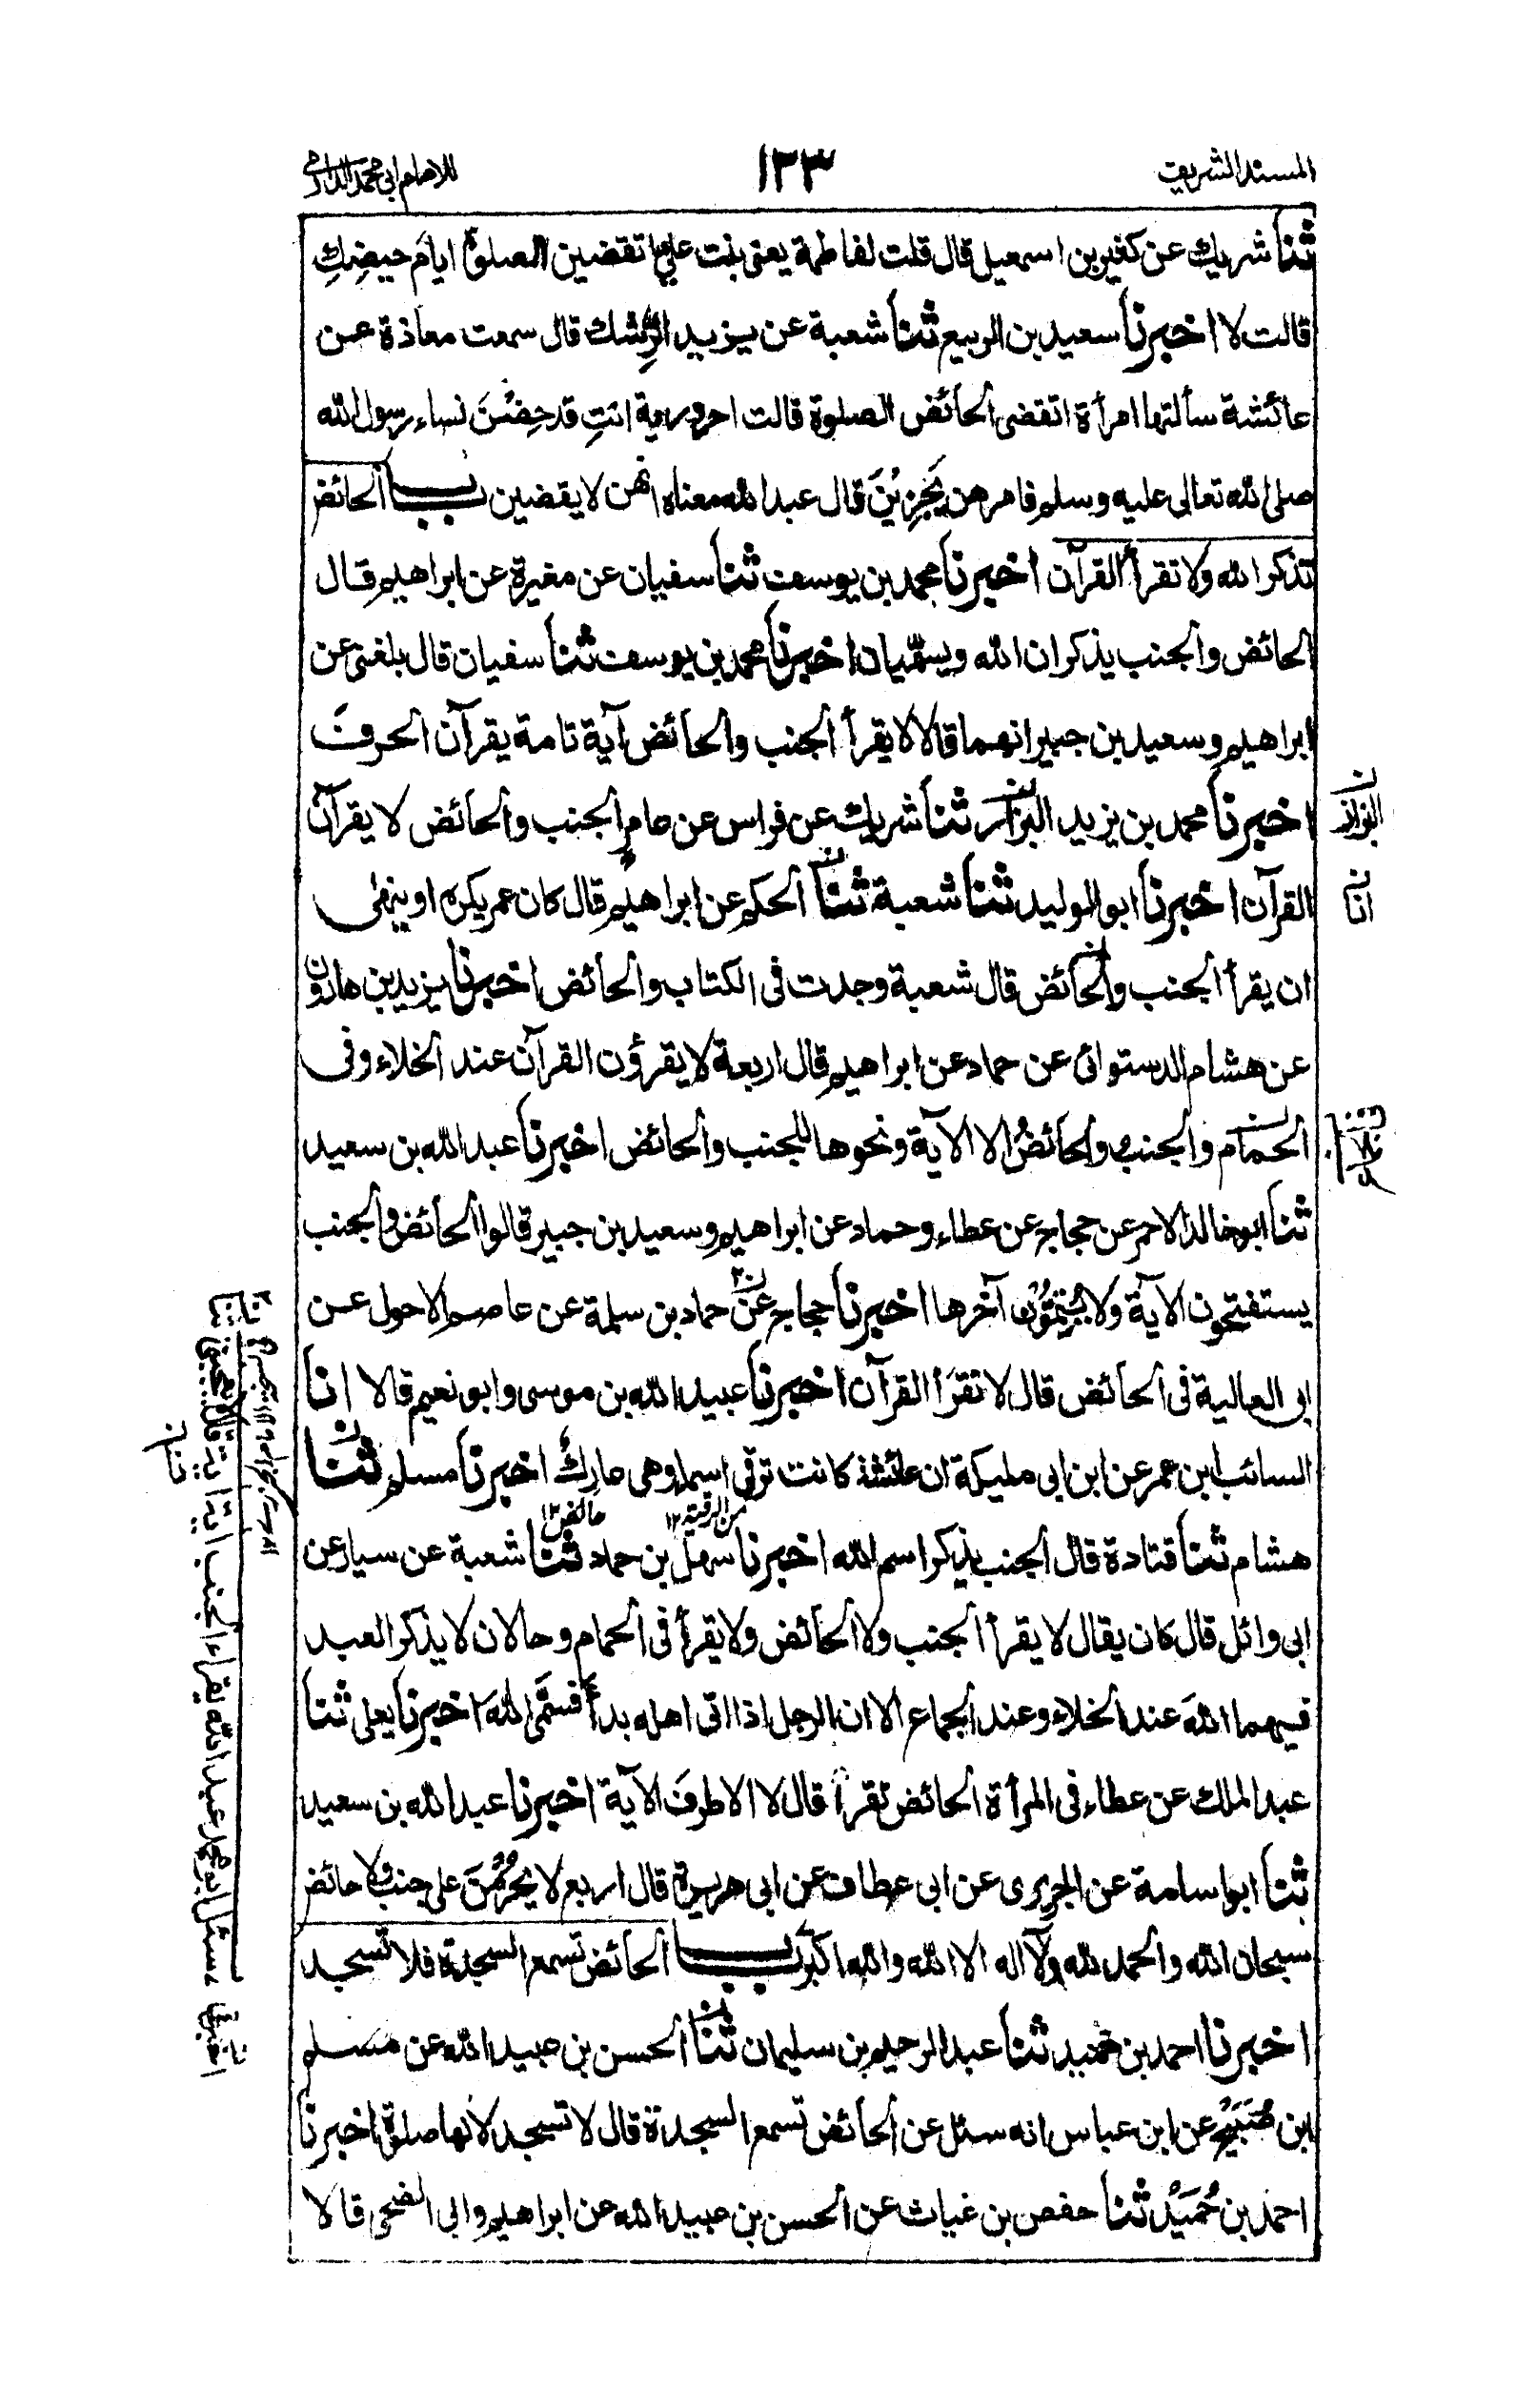 المسند الشريف ١٣٣ للامام ابي محمد الدارمي
ثنا شريك عن كثير بن اسمعيل قال قلت لفاطمة يعنى بنت علي اتقضين الصلوة ايام حيضكِ
قالت لا اخبرنا سعيد بن الربيع ثنا شعبة عن يزيد الرِّشك قال سمعت معاذة عن
عائشة سألتها امرأة اتقضى الحائض الصلوة قالت احرورية انتِ قد حِضْنَ نساء رسول الله
صلى الله تعالى عليه وسلم فامرهن يَجْزِيْنَ قال عبد الله معناه انهن لا يقضين باب الحائض
تذكر الله ولا تقرأ القرآن اخبرنا محمد بن يوسف ثنا سفيان عن مغيرة عن ابراهيم قال
الحائض والجنب يذكران الله ويسمّيان اخبرنا محمد بن يوسف ثنا سفيان قال بلغنى عن
ابراهيم وسعيد بن جبير انهما قالا لا يقرأ الجنب والحائض آية تامة يقرآن الحرف
اخبرنا محمد بن يزيد البزار ثنا شريك عن فراس عن عامر الجنب والحائض لا يقرآن
القرآن اخبرنا ابو الوليد ثنا شعبة ثنا الحكم عن ابراهيم قال كان عمر يكره او ينهى
ان يقرأ الجنب والحائض قال شعبة وجدت فى الكتاب والحائض اخبرنا يزيد بن هارون
عن هشام الدستوائى عن حماد عن ابراهيم قال اربعة لا يقرؤن القرآن عند الخلاء وفى
الحمام والجنب والحائضُ الا الآية ونحوها للجنب والحائض اخبرنا عبد الله بن سعيد
ثنا ابو خالد الاحمر عن حجاج عن عطاء وحماد عن ابراهيم وسعيد بن جبير قالوا الحائض والجنب
يستفتحون الآية ولا يُتِمُّوْن آخرها اخبرنا حجاج عن حماد بن سلمة عن عاصم الاحول عن
ابى العالية فى الحائض قال لا تقرَأ القرآن اخبرنا عبيد الله بن موسى وابو نعيم قالا انا
السائب ابن عمر عن ابن ابى مليكة ان عائشة كانت ترقى اسماء وهى عارِكٌ اخبرنا مسلم ثنا
من الرقية ١٢ حائض ١٢
هشام ثنا قتادة قال الجنب يذكر اسم الله اخبرنا سهل بن حماد ثنا شعبة عن سيار عن
ابى وائل قال كان يقال لا يقرأ الجنب ولا الحائض ولا يقرأ فى الحمام وحالان لا يذكر العبد
فيهما اللهَ عند الخلاء وعند الجماع الا ان الرجل اذا اتى اهله بدأ فسَمَّى اللهَ اخبرنا يعلى ثنا
عبد الملك عن عطاء فى المرأة الحائض تقرأ قال لا الا طرفَ الآية اخبرنا عبد الله بن سعيد
ثنا ابو اسامة عن الجريرى عن ابى عطاف عن ابى هريرة قال اربع لا يَحْرُمْنَ على جنب ولا حائض
سبحان الله والحمد لله ولا اله الا الله والله اكبر باب الحائض تسمع السجدة فلا تسجد
اخبرنا احمد بن حُمَيد ثنا عبد الرحيم بن سليمان ثنا الحسن بن عبيد الله عن مسلم
ابن صُبَيْح عن ابن عباس انه سئل عن الحائض تسمع السجدة قال لا تسجد لانها صلوة اخبرنا
احمد بن حُمَيْد ثنا حفص بن غياث عن الحسن بن عبيد الله عن ابراهيم وابى الضحى قالا
انا
سئل ابو محمد عبد الله يقراء الجنب اية اية قال لا يعجبنى